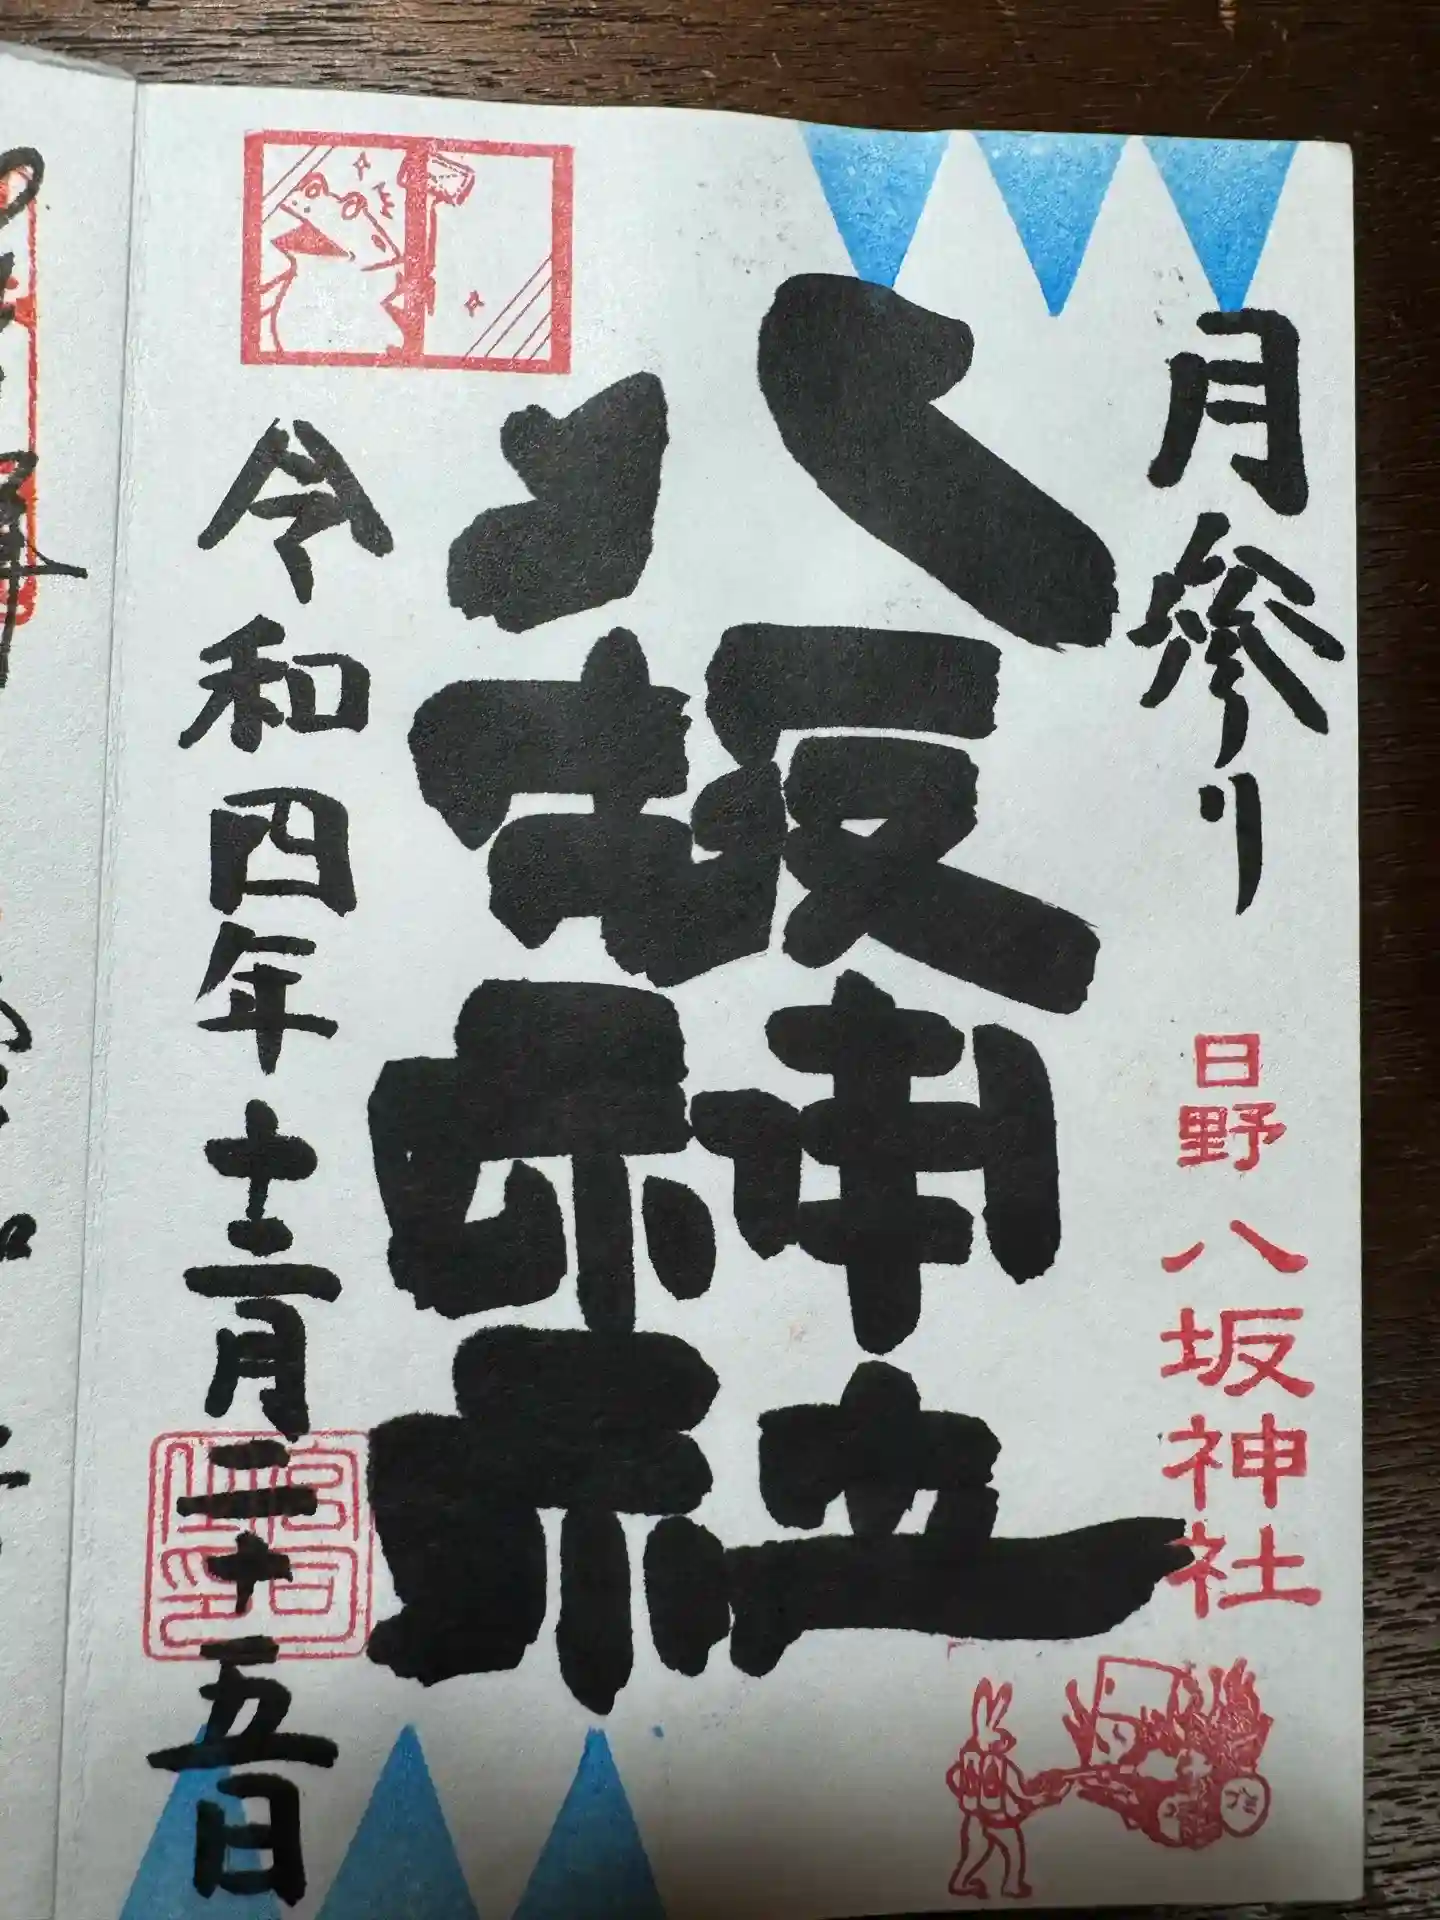 月参り
日野
八坂神社
八坂神社
令和四年十二月二十五日